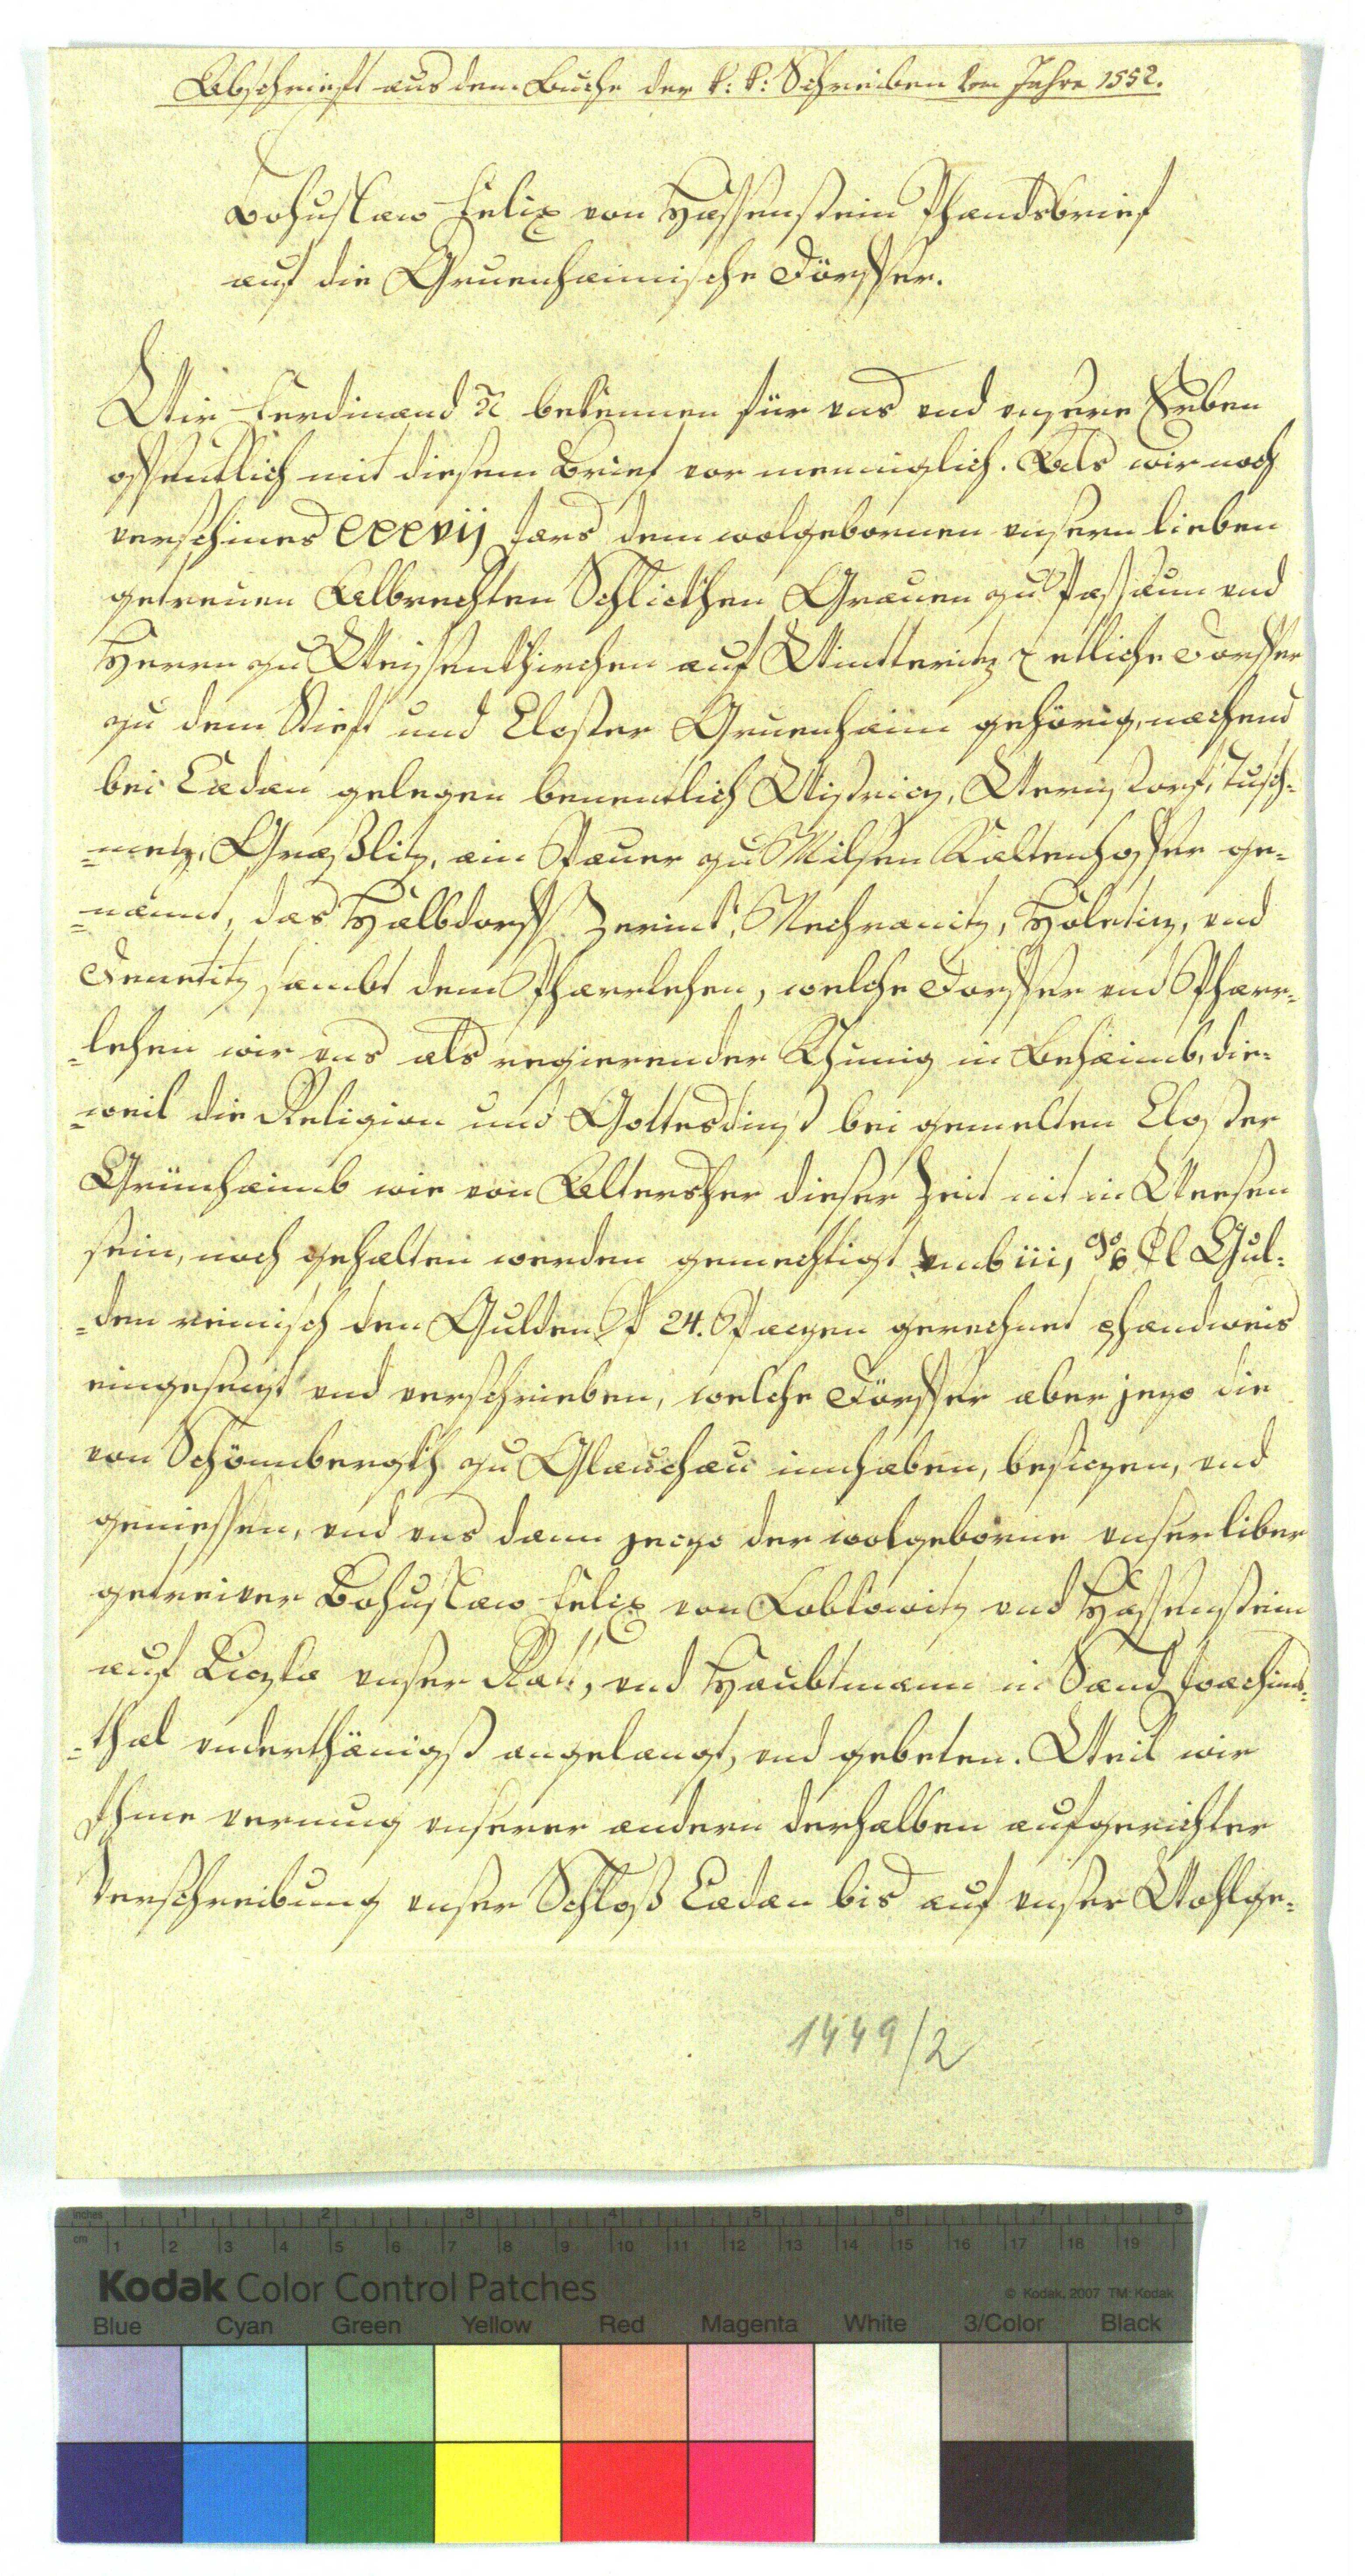 Abschrieft aus dem Buche der k: k: Schreiben vom Jahre 1552.
Bohuslaw Felix von Hassenstein Pfandsbrief
auf die Gruenhaimische Dörffer.
Wir Ferdinand ꝛc bekennen für uns und unsere Erben
offentlich mit diesem Brief vor menniglich. Als wir noch
verschines xxxvij Jars dem wolgebornen unsern lieben
getreuen Albrechten Schlickhen Grauen zu Passaun und
Herrn zu Weissenkhirchen auf Wintteritz ꝛ etliche Dorffer
zu dem Stieft und Closter Gruenhaim gehörig, nachend
bei Cadan gelegen benentlich Wistricz, Wernstorf, Tusch-
-metz, Graßlitz, ain Pauer zu Milsen Kaltenhoffer ge-
-nannt, das Halbdorff Zerint, Nechranitz, Holetitz, und
Denetitz sambt dem Pfarrlehen, welche Dorffer und Pfarr-
-lehen wir uns als regierender Khunig in Behaimb, die-
-weil die Religion und Gottesdinst bei gemelten Closter
Grünhaimb wie von Altersher dieser Zeit nit in Weesen
sein, noch gehalten werden gemechtigt umb iii, Gul-
-den reinisch den Gulden P 24. Paczen gerechnet phandweis
eingesezt und verschrieben, welche Dörffer aber jezo die
von Schönnbergkh zu Glauchau innhaben, besiczen, und
geniessen, und uns dann jeczo der wolgeborne unser liber
getreiver Bohuslaw Felix von Lobkowitz und Hassenstein
auf Liczka unser Ratt, und Haubtmann in Sand Joachims-
-thal underthänigst angelangt, und gebeten. Weil wir
Ihme vermug unserer andern derhalben aufgerichter
Verschreibung unser Schloß Cadan bis auf unser Wohlge-
1449/2
inches 1 2 3 4 5 6 7 8
cm 1 2 3 4 5 6 7 8 9 10 11 12 13 14 15 16 17 18 19
Kodak Color Control Patches
© Kodak, 2007 TM: Kodak
Blue Cyan Green Yellow Red Magenta White 3/Color Black